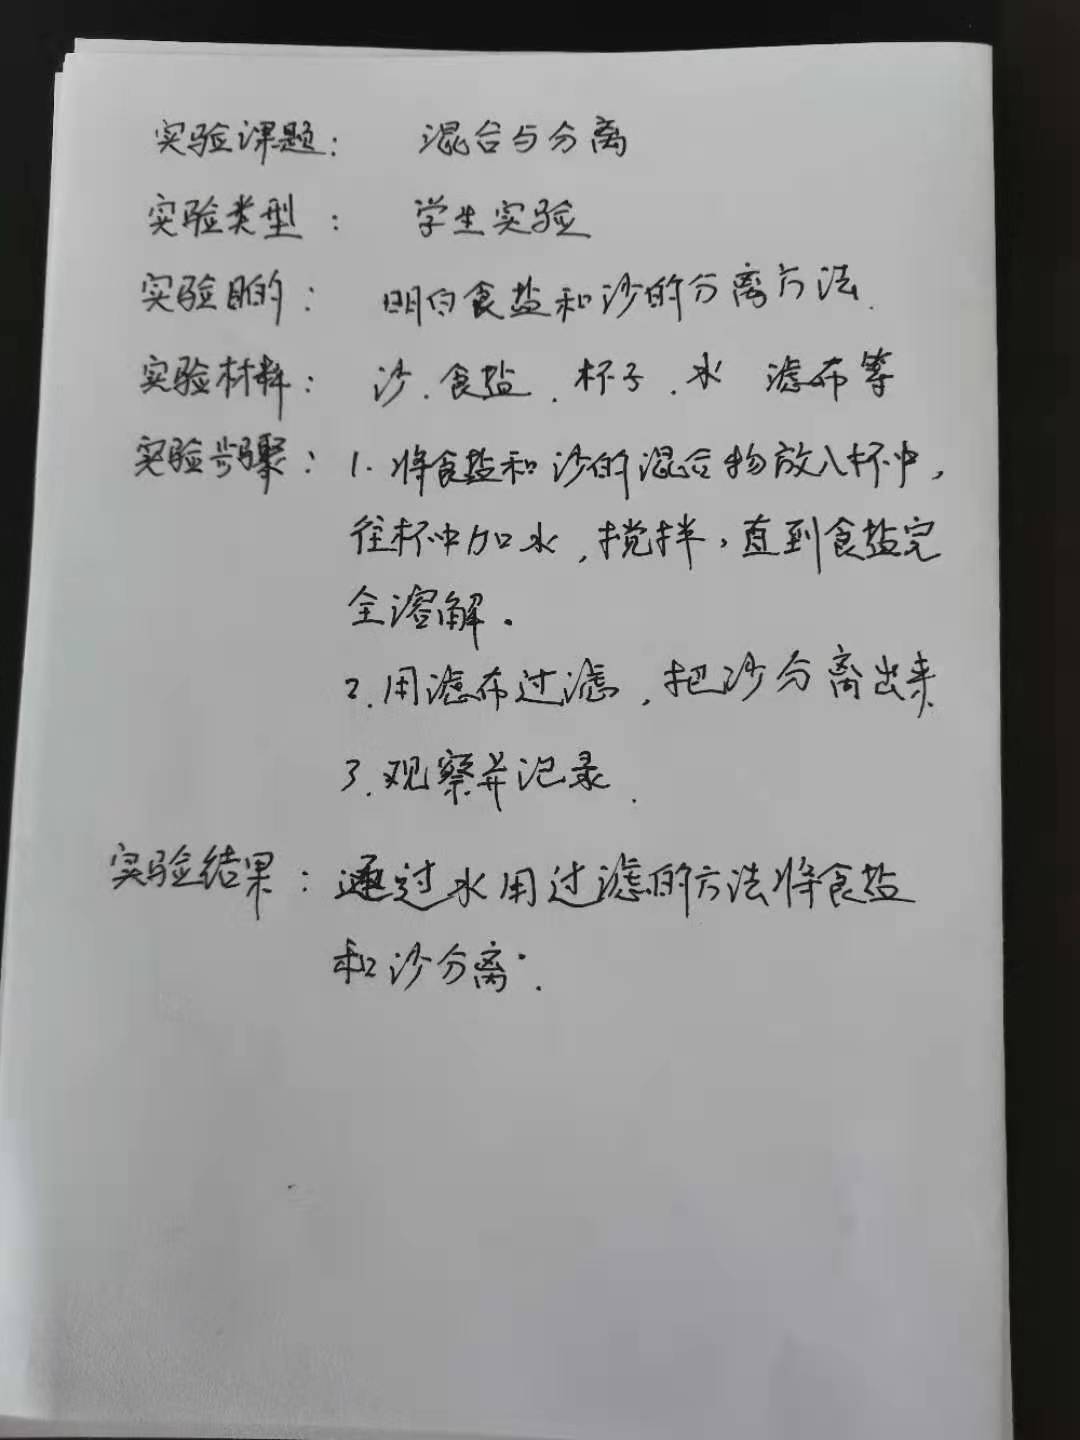 实验课题： 混合与分离
实验类型： 学生实验
实验目的： 明白食盐和沙的分离方法.
实验材料： 沙.食盐.杯子.水 滤布等
实验步骤：1.将食盐和沙的混合物放入杯中,
往杯中加水,搅拌,直到食盐完
全溶解。
2.用滤布过滤,把沙分离出来
3.观察并记录.
实验结果：通过水用过滤的方法将食盐
和沙分离.